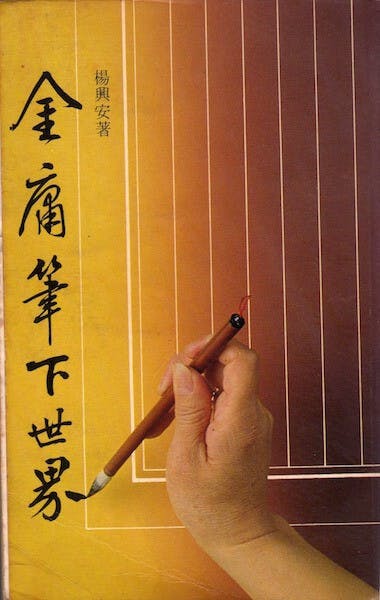 金庸筆下世界
楊興安著